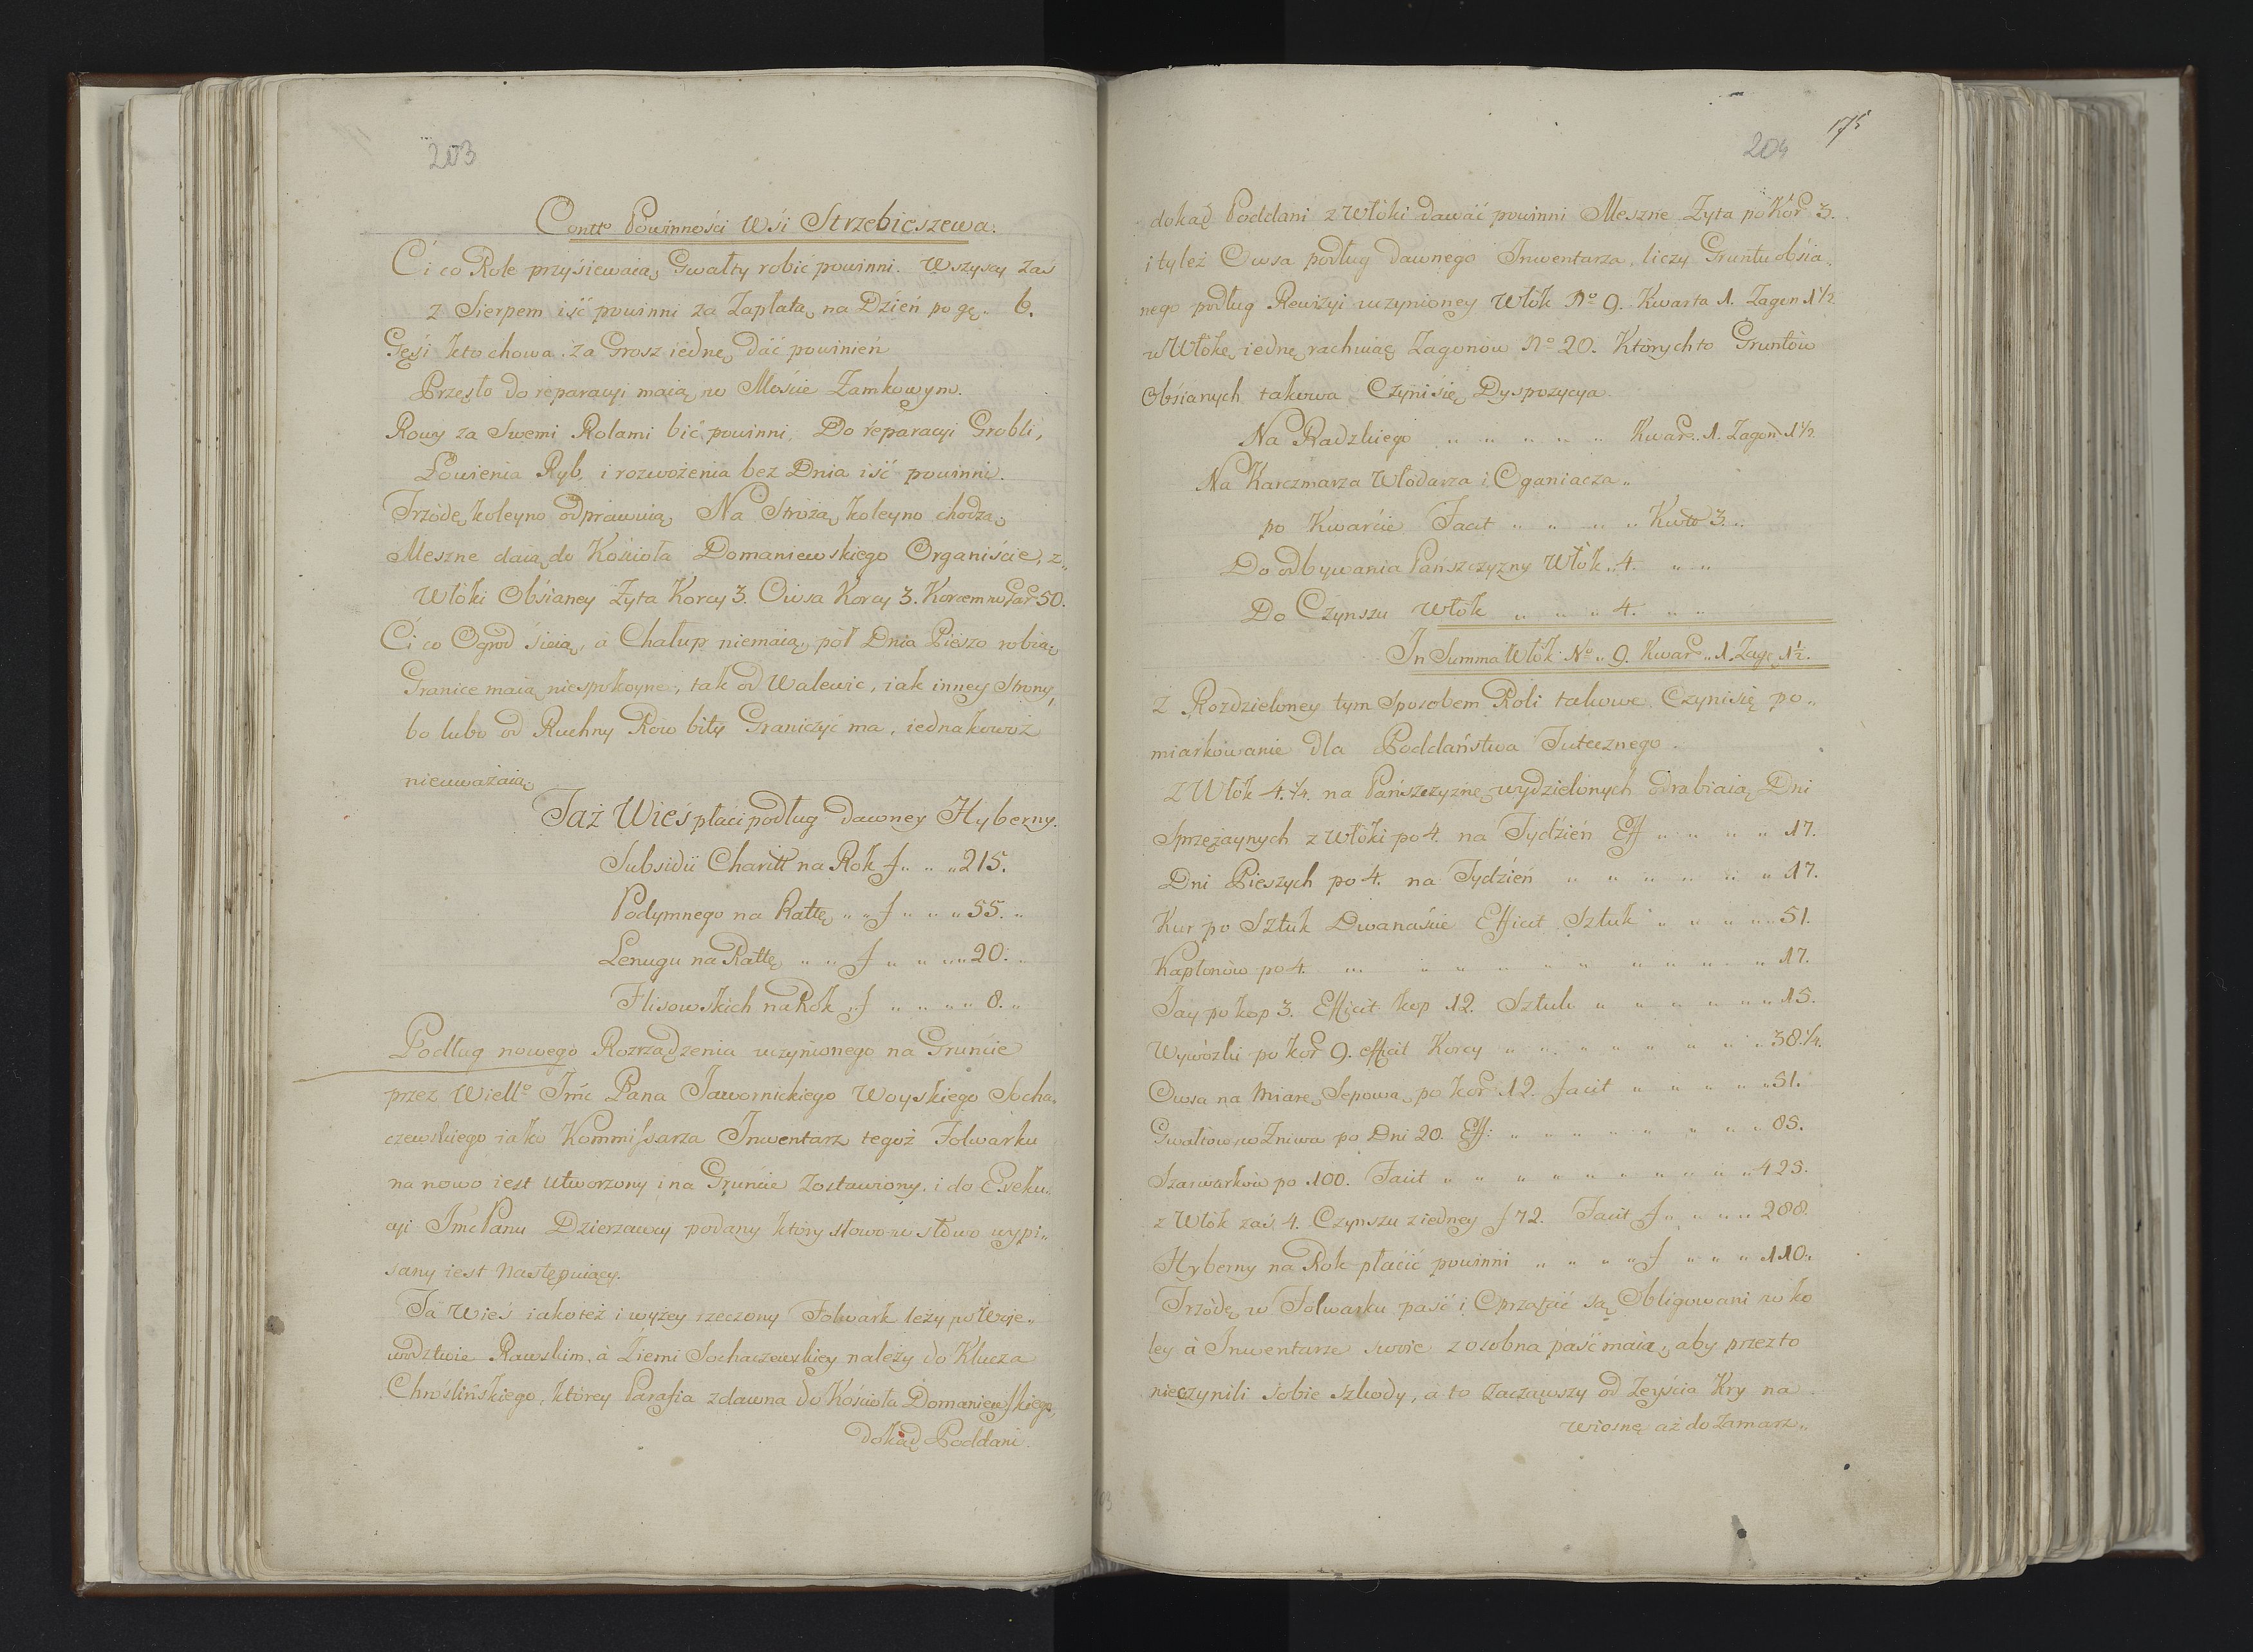 203
Contto Powinności Wśi Strzebieszewa.
Ci co Role przyśiewaią, Gwałty robić powinni. Wszyscy zaś
z Sierpem iść powinni za Zapłatą na Dzień po gę. 6.
Gęśi kto chowa za Grosz iednę dać powinień
Przęsło do reparacyi maią w Moście Zamkowym.
Rowy za Swemi Rolami bić powinni. Do reparacyi Grobli,
Łowienia Ryb, i rozwożenia bez Dnia iść powinni.
Trzodę koleyno odprawuią Na Stróżą koleyno chodzą.
Meszne daią do Kościoła Domaniewskiego Organiście, z„
Włóki Obśianey Żyta Korcy 3. Owsa Korcy 3. Korcem w Gar 50.
Ci co Ogrod śieią, a Chałup niemaią, pół Dnia Pieszo robią.
Granice maią niespokoyne, tak od Walewic, iak inney Strony,
bo lubo od Ruchny Row bity Graniczyć ma, iednakowoż
nieuważaią.
Taż Wieś płaci podług dawney Hyberny.
Subsidii Charitt na Rok f „ „ „ 215.
Podymnego na Rattę „ „ f „ „ „ 55. „
Lenugu na Rattę „ „ f „ „ „ 20. „
Flisowskich na Rok „ f „ „ „ „ 8. „
Podług nowego Rozrządzenia uczynionego na Gruncie
przez Wiello Imć Pana Jawornickiego Woyskiego Socha„
czewskiego iako Kommissarza Inwentarz tegoż Folwarku
na nowo iest Utworzony i na Gruncie Zostawiony, i do Exeku„
cyi Imć Panu Dzierzawcy podany który słowo w słowo wypi„
sany iest Następuiący.
Ta Wieś iakoteż i wyżey rzeczony Folwark leży w Woje„
wodztwie Rawskim, à Ziemi Sochaczewskiey należy do Klucza
Chroślińskiego, którey Parafia zdawna do Kościoła Domaniewskiego,
Dokąd Poddani
175
204
dokąd Poddani z Włóki dawać powinni Meszne Żyta po Kor 3.
i tyleż Owsa podług dawnego Inwentarza, liczy Gruntu obśia„
nego podług Rewizyi uczynioney Włók No 9. Kwarta 1. Zagon 1 1/2
w Włókę iednę rachuiąc Zagonów No 20. Których to Gruntów
Obśianych takowa Czyni się Dyspozycya.
Na Radzkiego „ „ „ „ „ Kwar. 1. Zagon 1 1/2
Na Karczmarza Włodarza i Oganiacza „
po Kwarcie Facit „ „ „ „ „ Kwto 3. „
Do odbywania Pańszczyzny Włók „ 4. „ „
Do Czynszu Włók „ „ „ „ 4. „ „
In Summa Włók No „ 9. Kwar „ 1. Zag. 1 1/2.
Z Rozdzieloney tym Sposobem Roli takowe Czyni się po„
miarkowanie dla Poddaństwa Tutecznego.
Z Włók 4. 1/4. na Pańszczyznę wydzielonych odrabiaią Dni
Sprzężaynych z Włóki po 4. na Tydzień Eff „ „ „ „ 17.
Dni Pieszych po 4. na Tydzień „ „ „ „ „ „ 17.
Kur po Sztuk Dwanaście Efficit Sztuk „ „ „ „ „ 51.
Kapłonów po 4. „ „ „ „ „ „ „ „ „ „ 17.
Jay po kop 3. Efficit kop 12. Sztuk „ „ „ „ „ „ 15.
Wywózki po kor 9. efficit Korcy „ „ „ „ „ „ „ 38. 1/4.
Owsa na Miarę Sepową po kor 12. facit „ „ „ „ „ 51.
Gwałtow w Żniwa po Dni 20. Eff: „ „ „ „ „ „ „ 85.
Szarwarków po 100. Facit „ „ „ „ „ „ „ „ „ 425.
z Włók zaś 4. Czynszu z iedney f 72. Facit f „ „ „ „ 288.
Hyberny na Rok płacić powinni „ „ „ „ f „ „ „ 110.
Trzodę w Folwarku paść i Oprzątać są Obligowani w ko
ley à Inwentarze swoie z osobna paść maią, aby przez to
nieczynili sobie szkody, a to zacząwszy od Zeyścia Kry na
wiosnę aż do Zamarz„